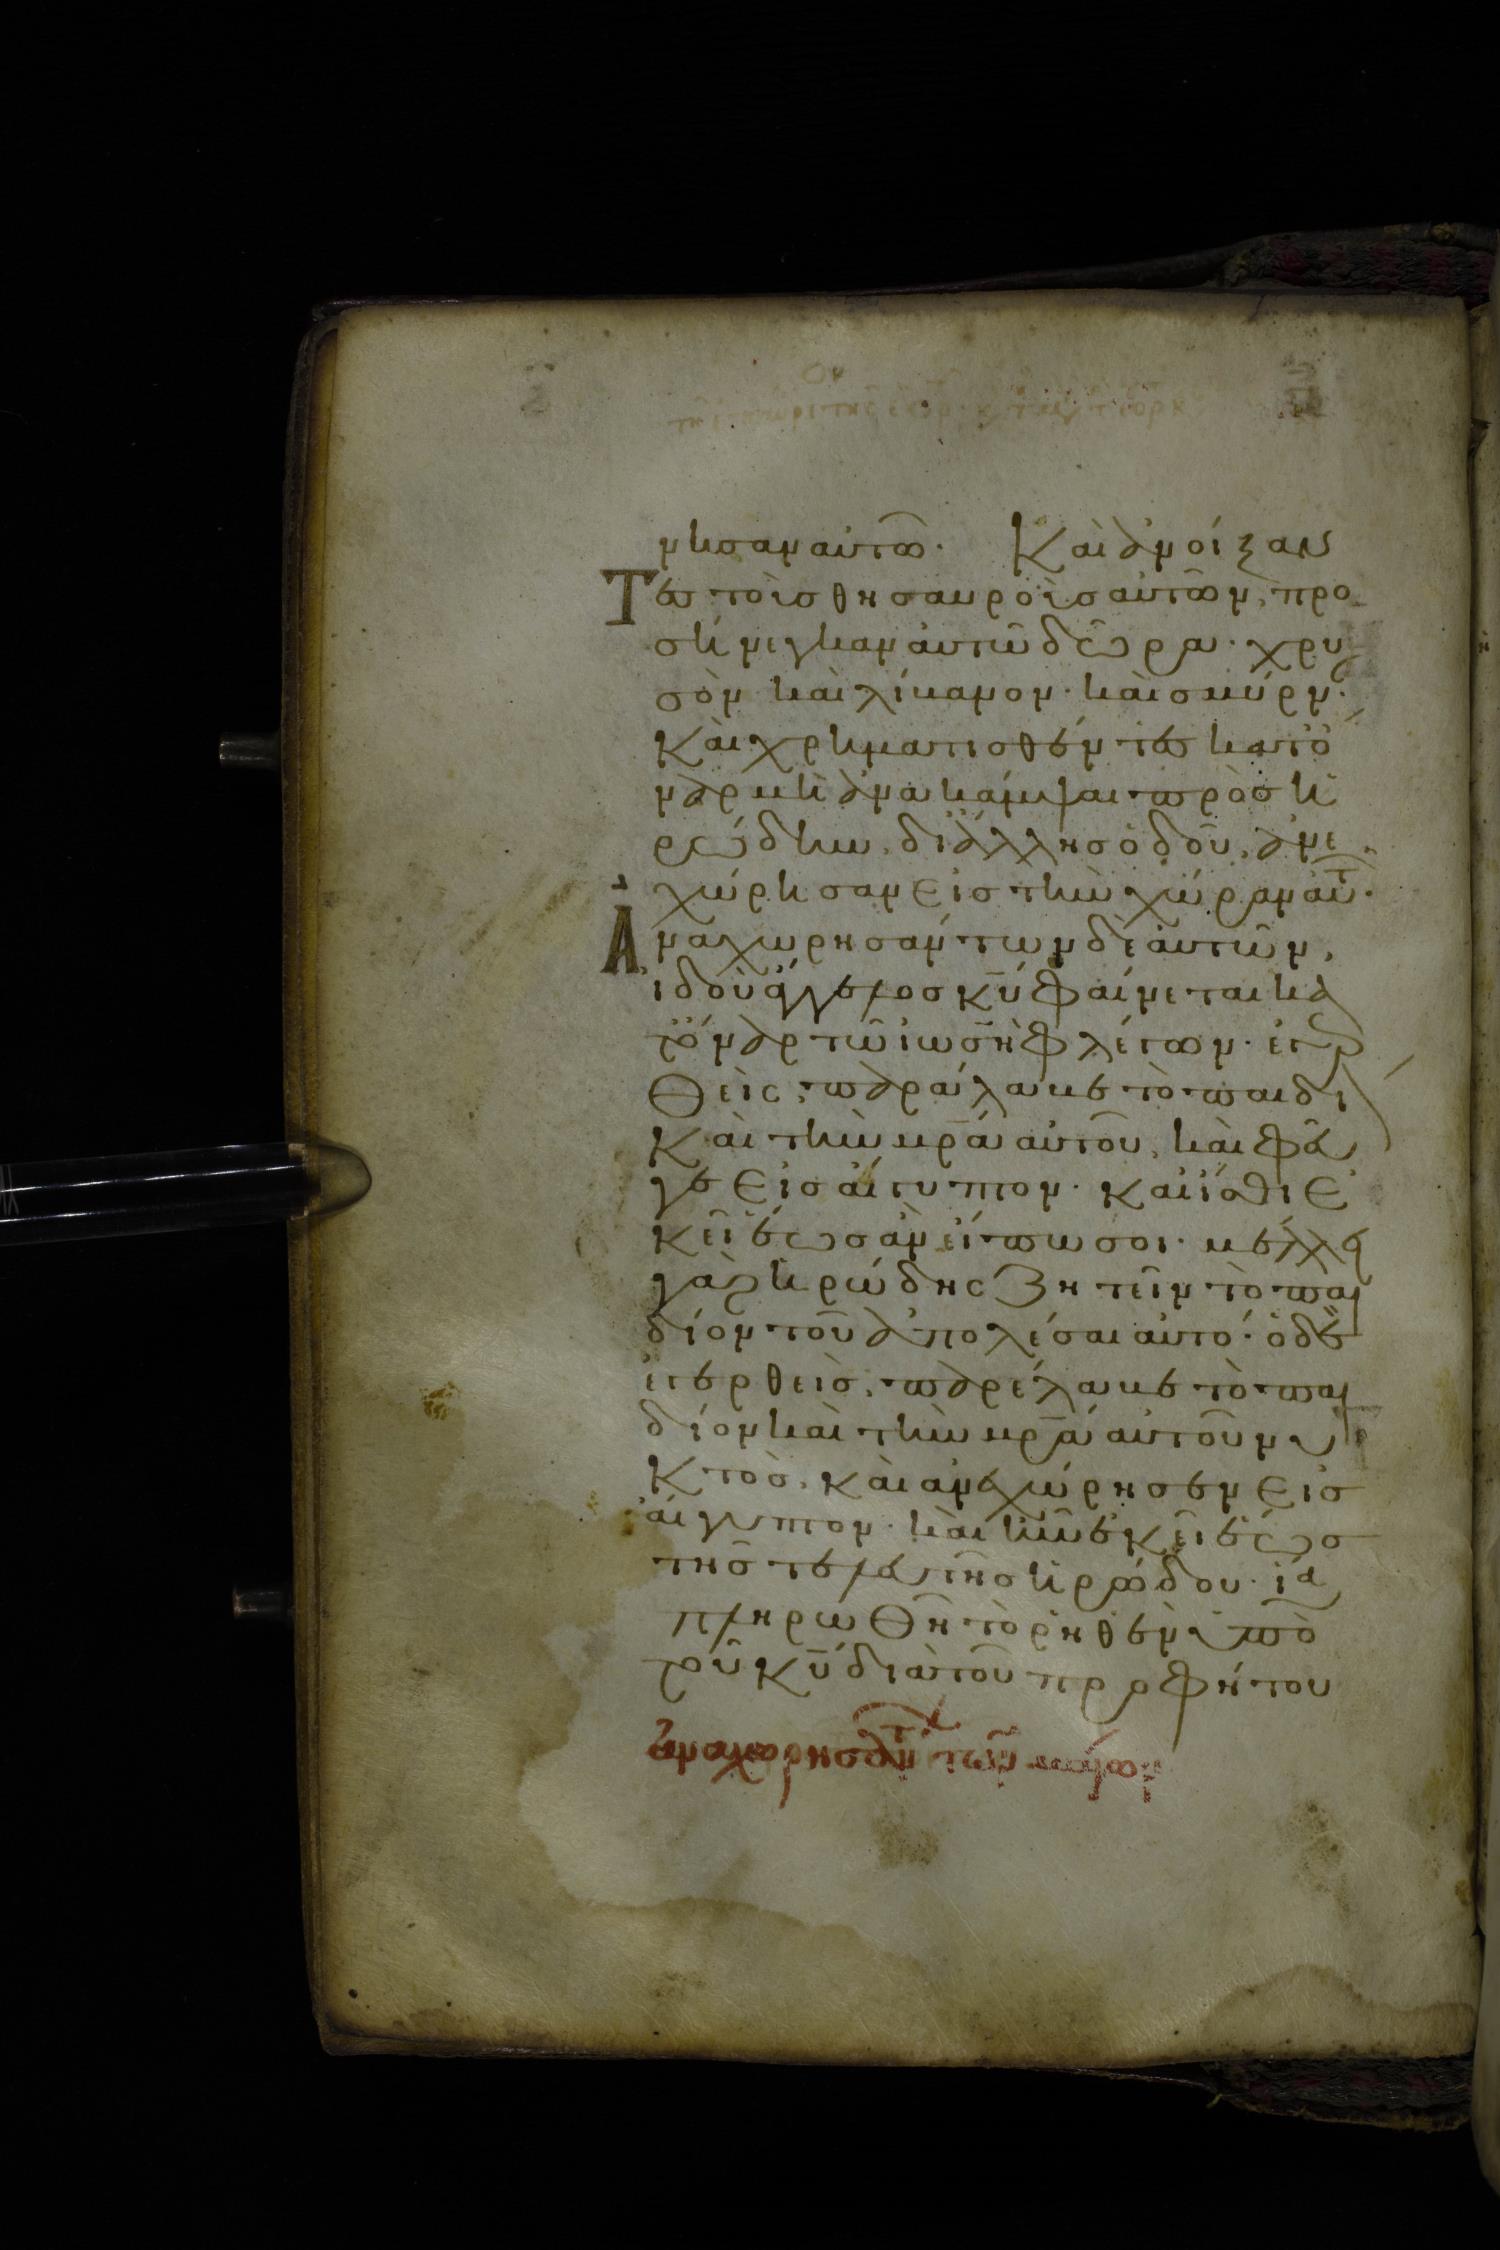 νησαν αυτῶ. Καὶ ἀνοίξαν
Τες τοὺς θησαυροὺς αὐτῶν, προ
σήνεγκαν αὐτῶ δῶρα. χρυ
σὸν καὶ λίβανον. καὶ σμύρν.
Καὶ χρηματισθέντες κατ ὄ
ναρ μὴ ἀνακάμψαι πρὸς ἡ
ρώδην, δι ἄλλης ὁδοῦ, ἀνε
χώρησαν εἰς τὴν χώραν αὐτ.
Ἀναχωρησάντων δὲ αὐτῶν,
ἰδοὺ ἄγγελος κυ φαίνεται κα
τ ὄναρ τῶ ἰωσὴφ λέγων. ἐγερ
Θεὶς, παράλαβε τὸ παιδι
Καὶ τὴν μρα αὐτοῦ, καὶ φεῦ
γε εἰς αἴγυπτον. καὶ ἴσθι ἐ
κεῖ ἕως ἂν εἴπω σοι. μέλλει
γὰρ ἡρώδης ζητεῖν τὸ παι
δίον τοῦ ἀπολέσαι αὐτό. ὁ δὲ
ἐγερθεὶς, παρέλαβε τὸ παι
δίον καὶ τὴν μρα αὐτοῦ νυ
Κτὸς, καὶ ἀνεχώρησεν εἰς
αἴγυπτον. καὶ ἦν ἐκεῖ ἕως
τῆς τελευτῆς ἡρώδου. ἵνα
πληρωΘῆ τὸ ῥηθὲν ὑπὸ
τοῦ κυ διὰ τοῦ προφήτου